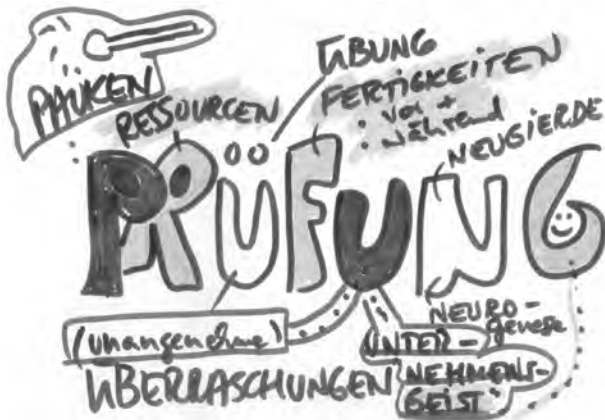 PAUKEN
RESSOURCEN
ÜBUNG
FERTIGKEITEN
: vor +
während
NEUGIERDE
PRÜFUNG
(unangenehme)
ÜBERRASCHUNGEN
NEURO-
genese
UNTER-
NEHMENS-
GEIST